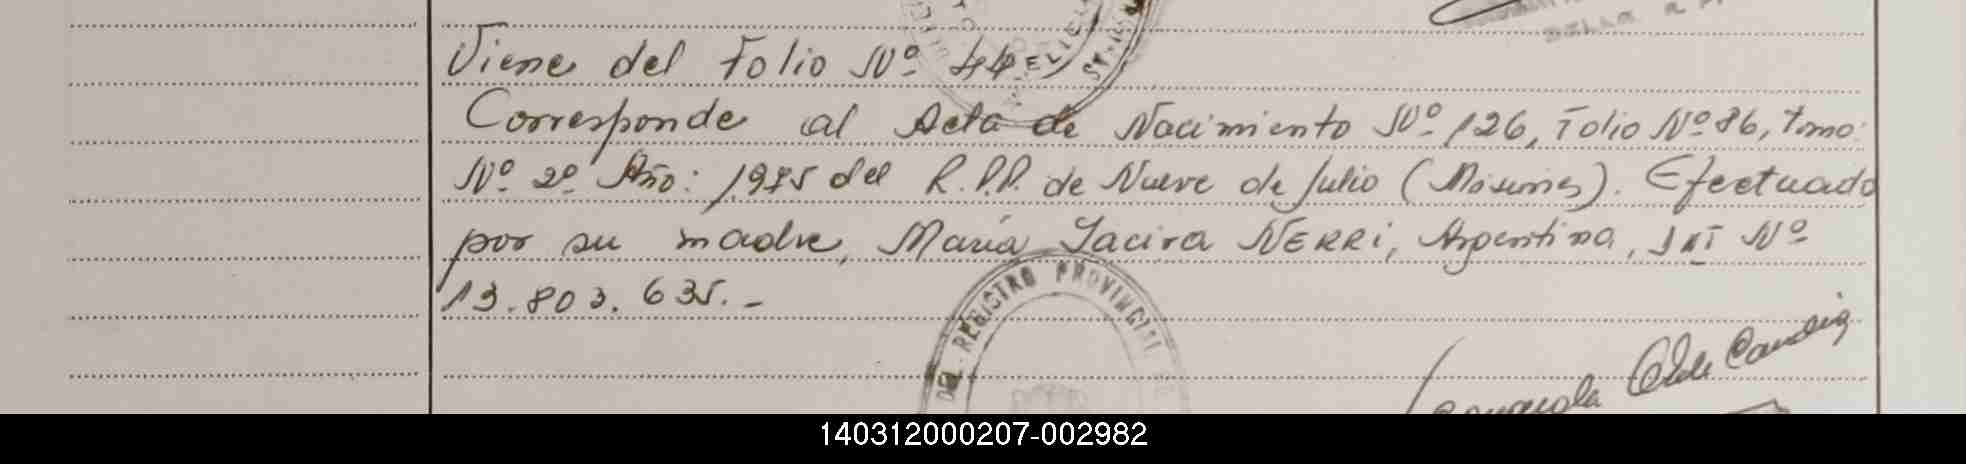 DELIA R
Viene del Folio Nº 44
Corresponde al Acta de Nacimiento Nº 126, Folio Nº 86, tomo:
Nº 2º Año: 1985 del R.P.P. de Nueve de Julio (Misiones). Efectuado
por su madre, María Jacira NERRi, Argentina, Nº
13.803.635.-
DEL REGISTRO PROVINCIAL
140312000207-002982